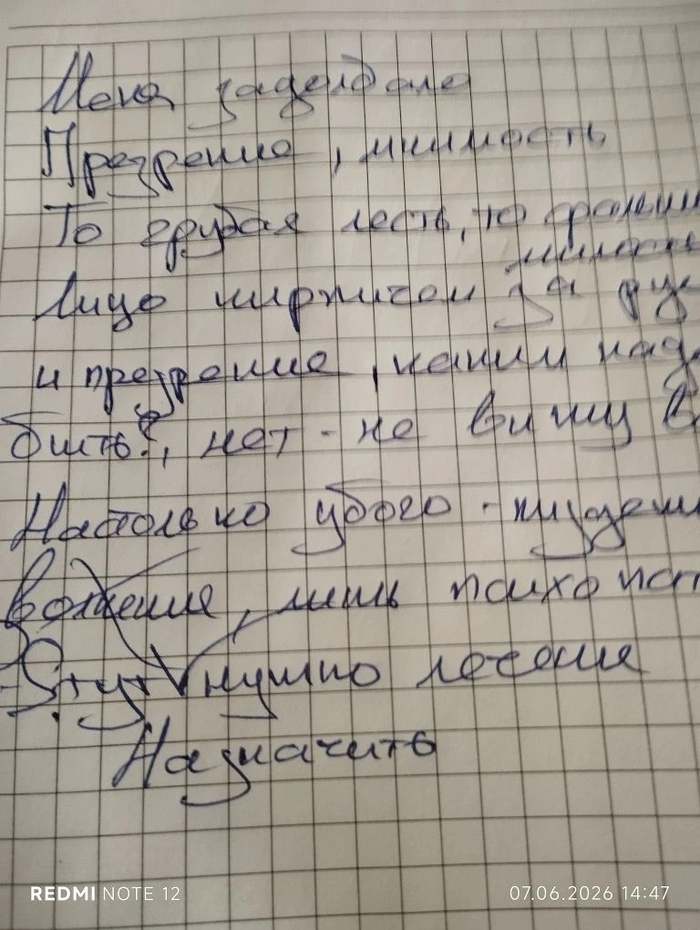 Меня задолбало
Презрение, мнимость
То грубая лесть, то
Лицо кирпичом за
и презрение, каким надо
быть?, нет - не вижу
Настолько убого -
лишь психопат
нужно лечение
Назначить
REDMI NOTE 12 07.06.2026 14:47